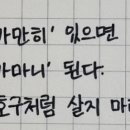 가만히' 있으면
가마니' 된다.
호구처럼 살지 마